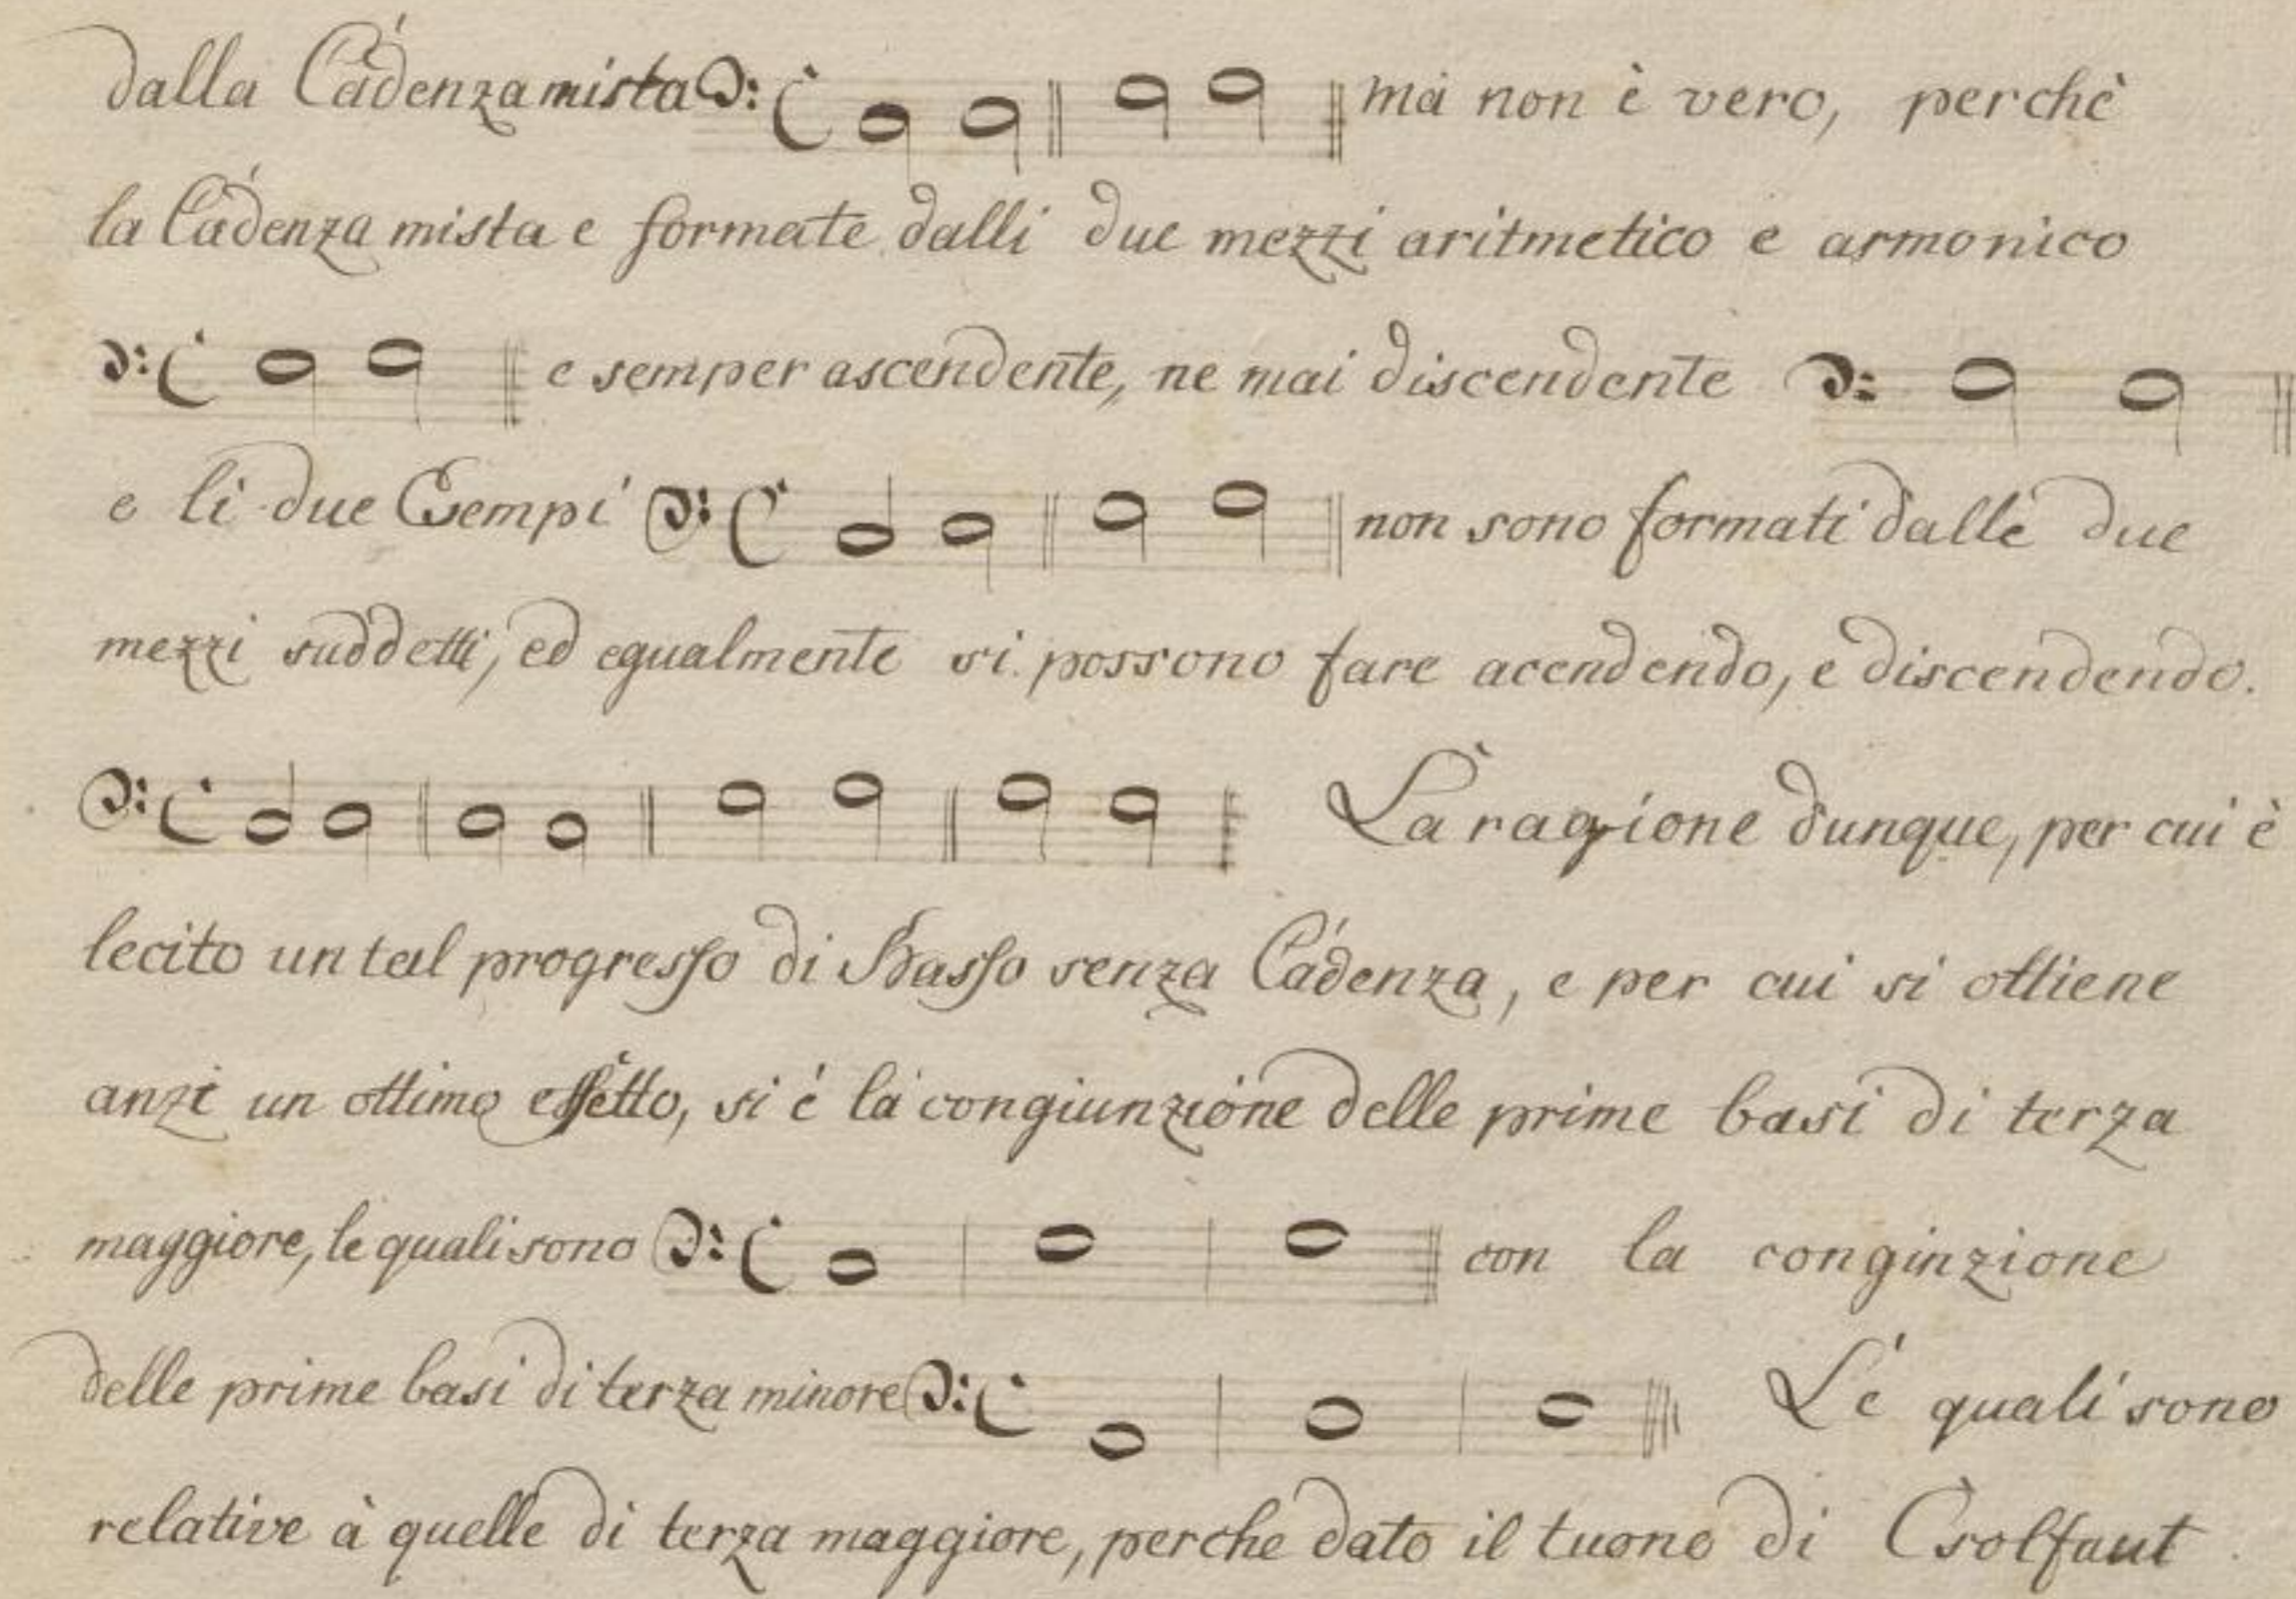 dalla Cádenza mista ma non è vero, perchè
la Cádenza mista e formate dalli due mezzi aritmetico e armonico
e semper ascendente, ne mai discendente
e li due Esempi non sono formati dalle due
mezzi suddetti, ed egualmente si possono fare acendendo, e discendendo.
La ragione dunque, per cui è
lecito un tal progresso di Basso senza Cádenza, e per cui si ottiene
anzi un ottimo effetto, si é la congiunzione delle prime basi di terza
maggiore, le quali sono con la conginzione
delle prime basi di terza minore Le quali sono
relative à quelle di terza maggiore, perche dato il tuono di Csolfaut